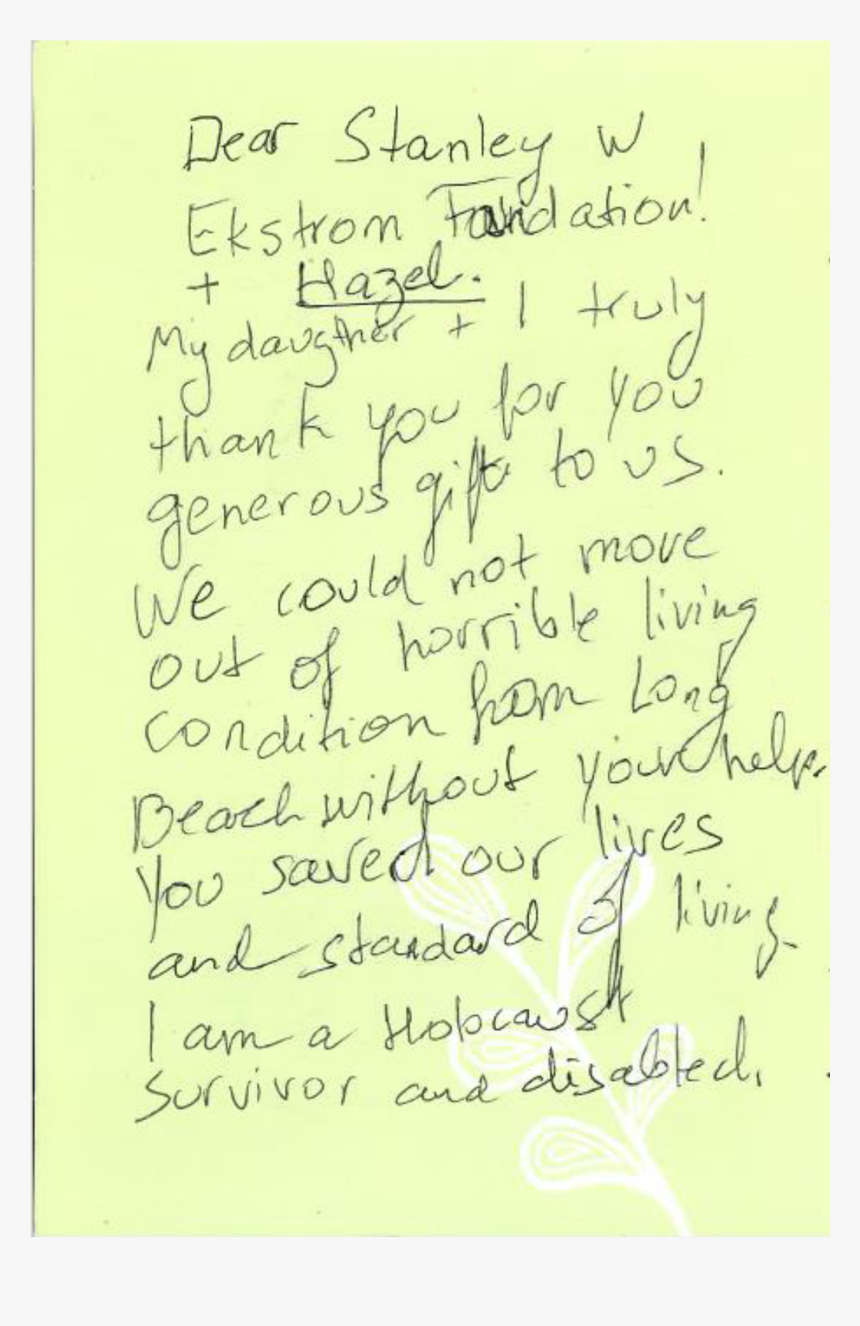 Dear Stanley W
Ekstrom Foundation!
+ Hazel.
My daugther + I truly
thank you for you
generous gift to us.
We could not move
out of horrible living
condition from Long
Beach without your help.
You saved our lives
and standard of living.
I am a Holocaust
survivor and disabled.